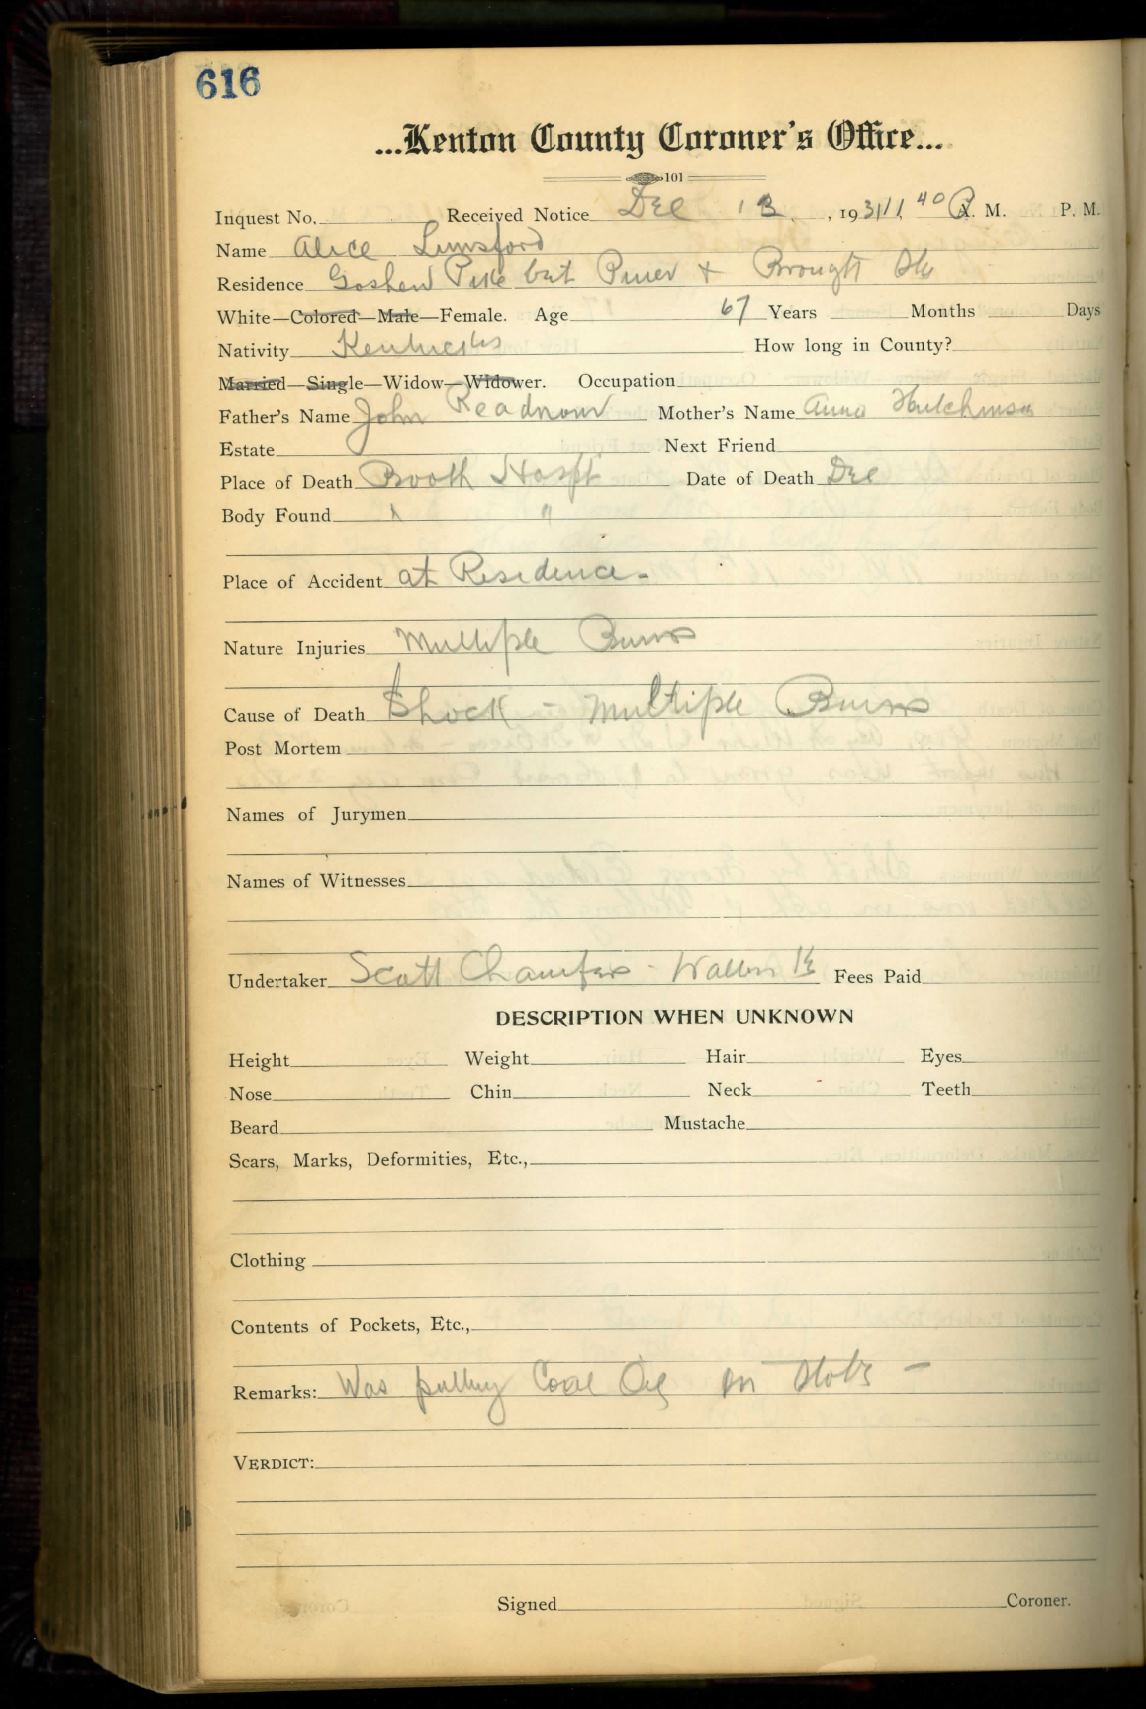 616
...Kenton County Coroner's Office...
101
Inquest No. Received Notice Dec 13, 1931 11 40 P A. M. P. M.
Name Alice Lunsford
Residence Goshen Pike bet Piner &
White—Colored—Male—Female. Age 67 Years Months Days
Nativity Kentucky How long in County?
Married—Single—Widow—Widower. Occupation
Father's Name John Readnour Mother's Name Anna Hutchinson
Estate Next Friend
Place of Death Booth Hospt Date of Death Dec
Body Found " "
Place of Accident at Residence -
Nature Injuries Multiple Burns
Cause of Death Shock - Multiple Burns
Post Mortem
Names of Jurymen
Names of Witnesses
Undertaker Scott Chambers - Fees Paid
DESCRIPTION WHEN UNKNOWN
Height Weight Hair Eyes
Nose Chin Neck Teeth
Beard Mustache
Scars, Marks, Deformities, Etc.,
Clothing
Contents of Pockets, Etc.,
Remarks: Was putting Coal Oil in Stove -
VERDICT:
Signed Coroner.